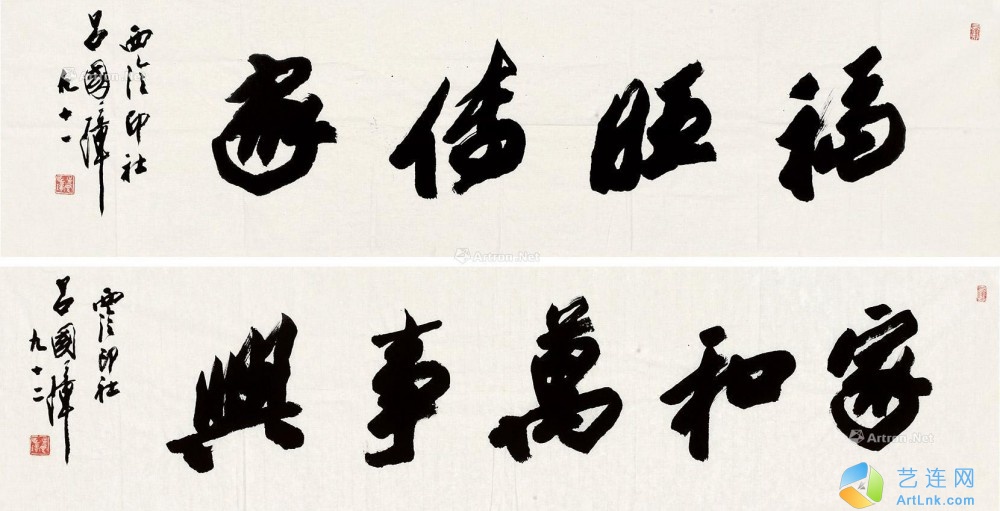 福旺傳家
西泠印社
吕國璋
九十一
Artron.Net
Artron.Net
家和萬事興
西泠印社
吕國璋
九十二
Artron.Net
艺连网
ArtLnk.com